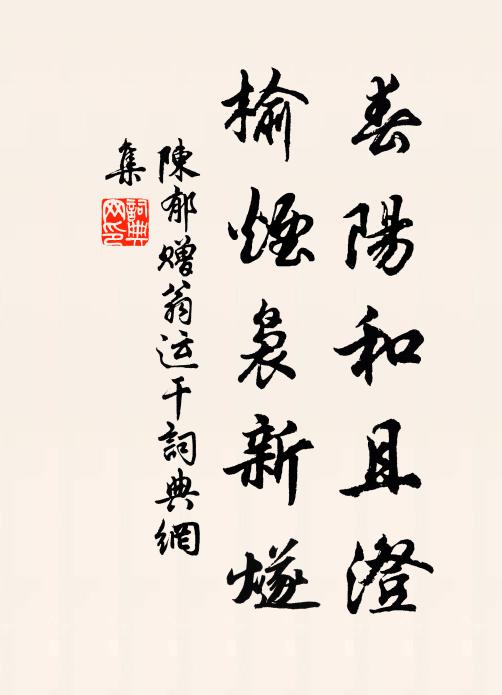 春陽和且澄
榆煙裊新燧
陳郁贈翁运干詞典網
集
詞典
网印